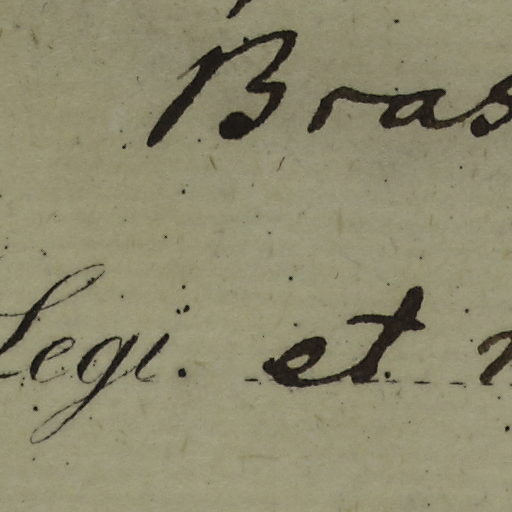 Bras
Legi. et